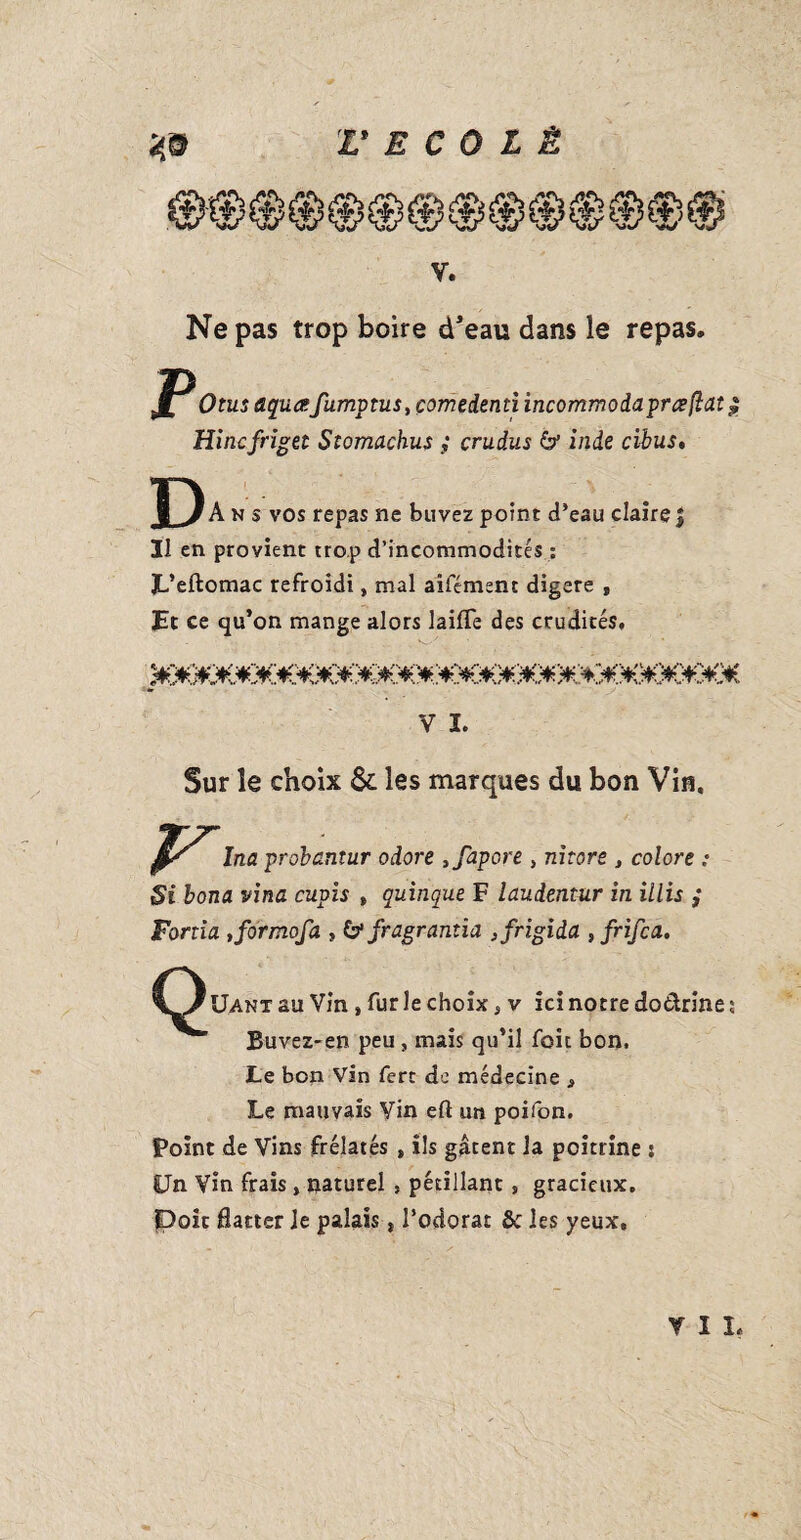 L'ECOLE
V.
Ne pas trop boire d'eau dans le repas.
POtus aquæ ſumptus, comedenti incommoda præſtat ;
Hinc friget Stomachus ; crudus & inde cibus.
DAns vos repas ne buvez point d'eau claire ;
Il en provient trop d'incommodités :
L'eſtomac refroidi, mal aiſément digere ,
Et ce qu'on mange alors laiſſe des crudités.
VI.
Sur le choix & les marques du bon Vin.
VIna probantur odore , ſapore , nitore , colore :
Si bona vina cupis , quinque F laudentur in illis ;
Fortia , formoſa , & fragrantia , frigida , friſca.
QUANT au Vin , ſur le choix , v ici notre doctrine :
Buvez-en peu , mais qu'il ſoit bon.
Le bon Vin ſert de médecine ,
Le mauvais Vin eſt un poiſon.
Point de Vins frélatés , ils gâtent la poitrine :
Un Vin frais , naturel , pétillant , gracieux.
Doit flatter le palais , l'odorat & les yeux.
VII.